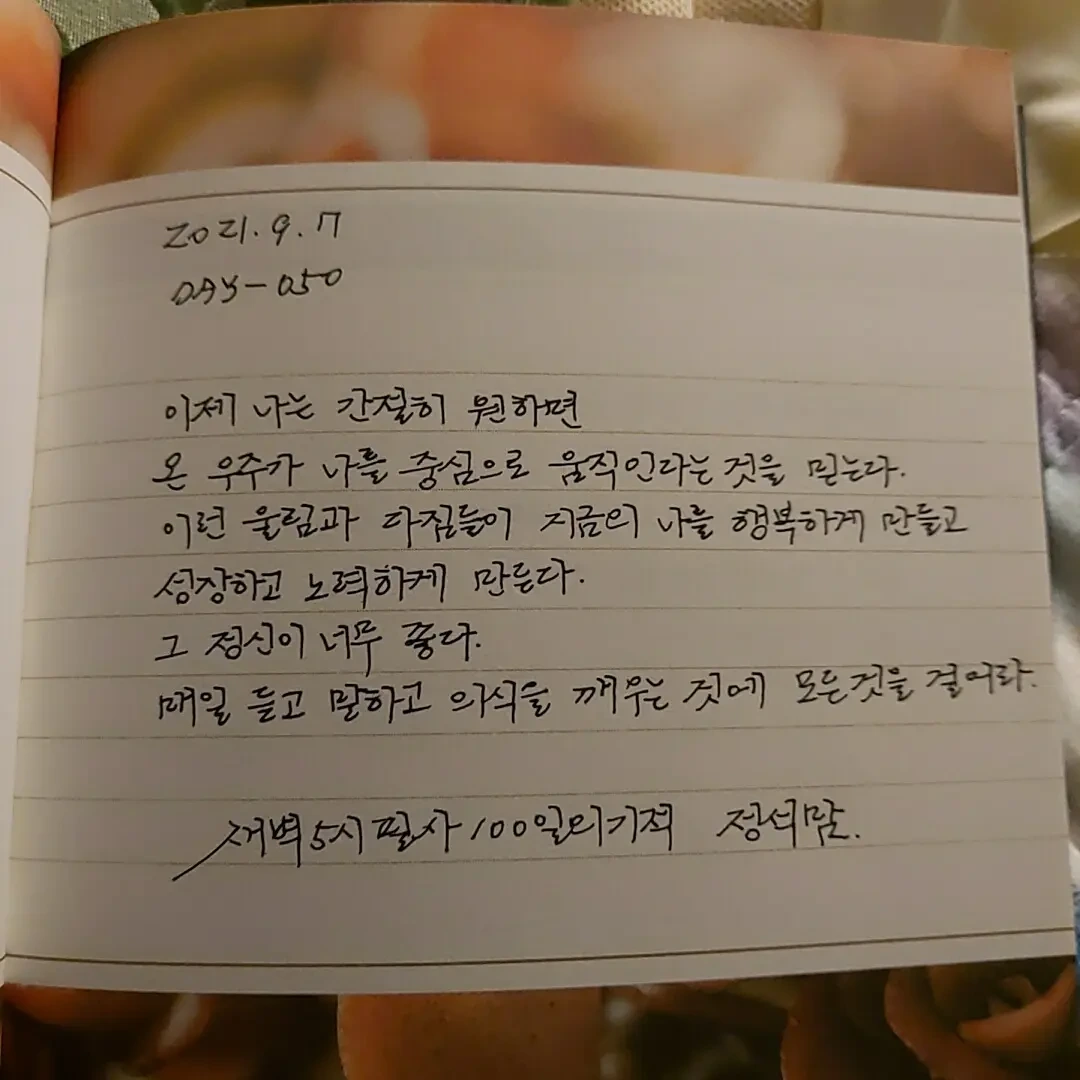 2021.9.17
DAY-050
이제 나는 간절히 원하면
온 우주가 나를 중심으로 움직인다는 것을 믿는다.
이런 울림과 다짐들이 지금의 나를 행복하게 만들고
성장하고 노력하게 만든다.
그 정신이 너무 좋다.
매일 듣고 말하고 의식을 깨우는 것에 모든것을 걸어라.
새벽5시필사100일의기적 정석맘.